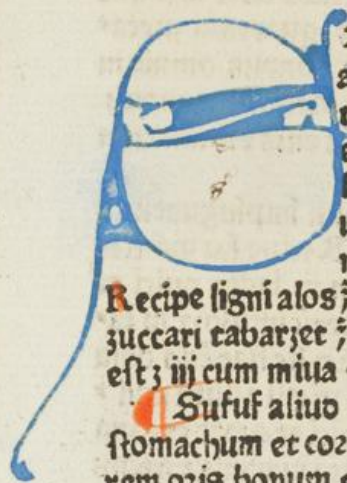 Recipe ligni aloes ℥
zuccari tabarzet ℥
est ʒ iij cum miua
Sufuf aliud
stomachum et cor
rem oris bonum